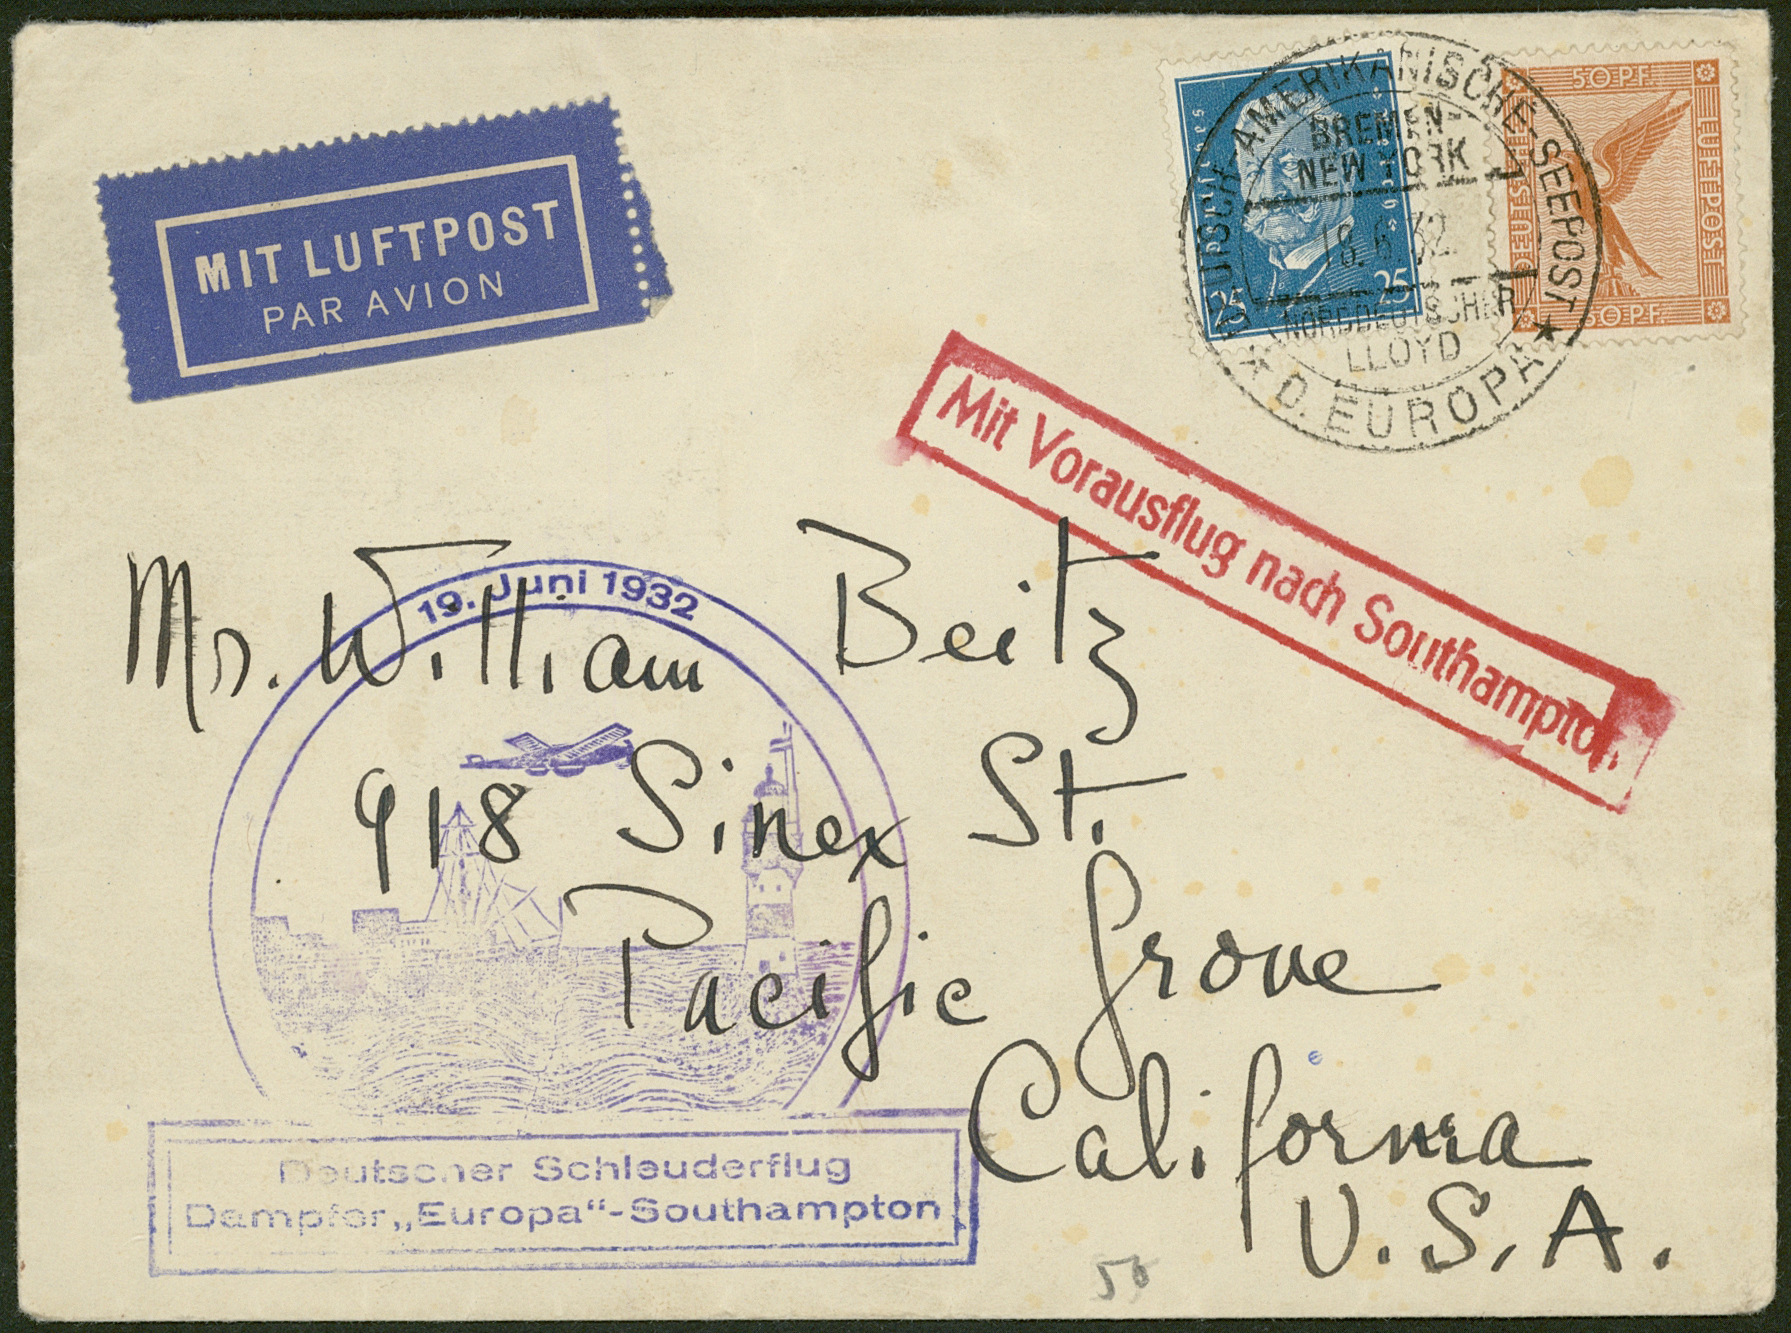 MIT LUFTPOST
PAR AVION
Deutsches Reich
25 25
50 PF.
DEUTSCHE FLUGPOST
50 PF.
DEUTSCH-AMERIKANISCHE-SEEPOST
BREMEN-
NEW YORK
18.6.32
NORDDEUTSCHER
LLOYD
★ D. EUROPA ★
Mit Vorausflug nach Southampton
19. Juni 1932
Mr. William Beitz
918 Sinex St.
Pacific Grove
California
U.S.A.
Deutscher Schleuderflug
Dampfer „Europa“-Southampton
50